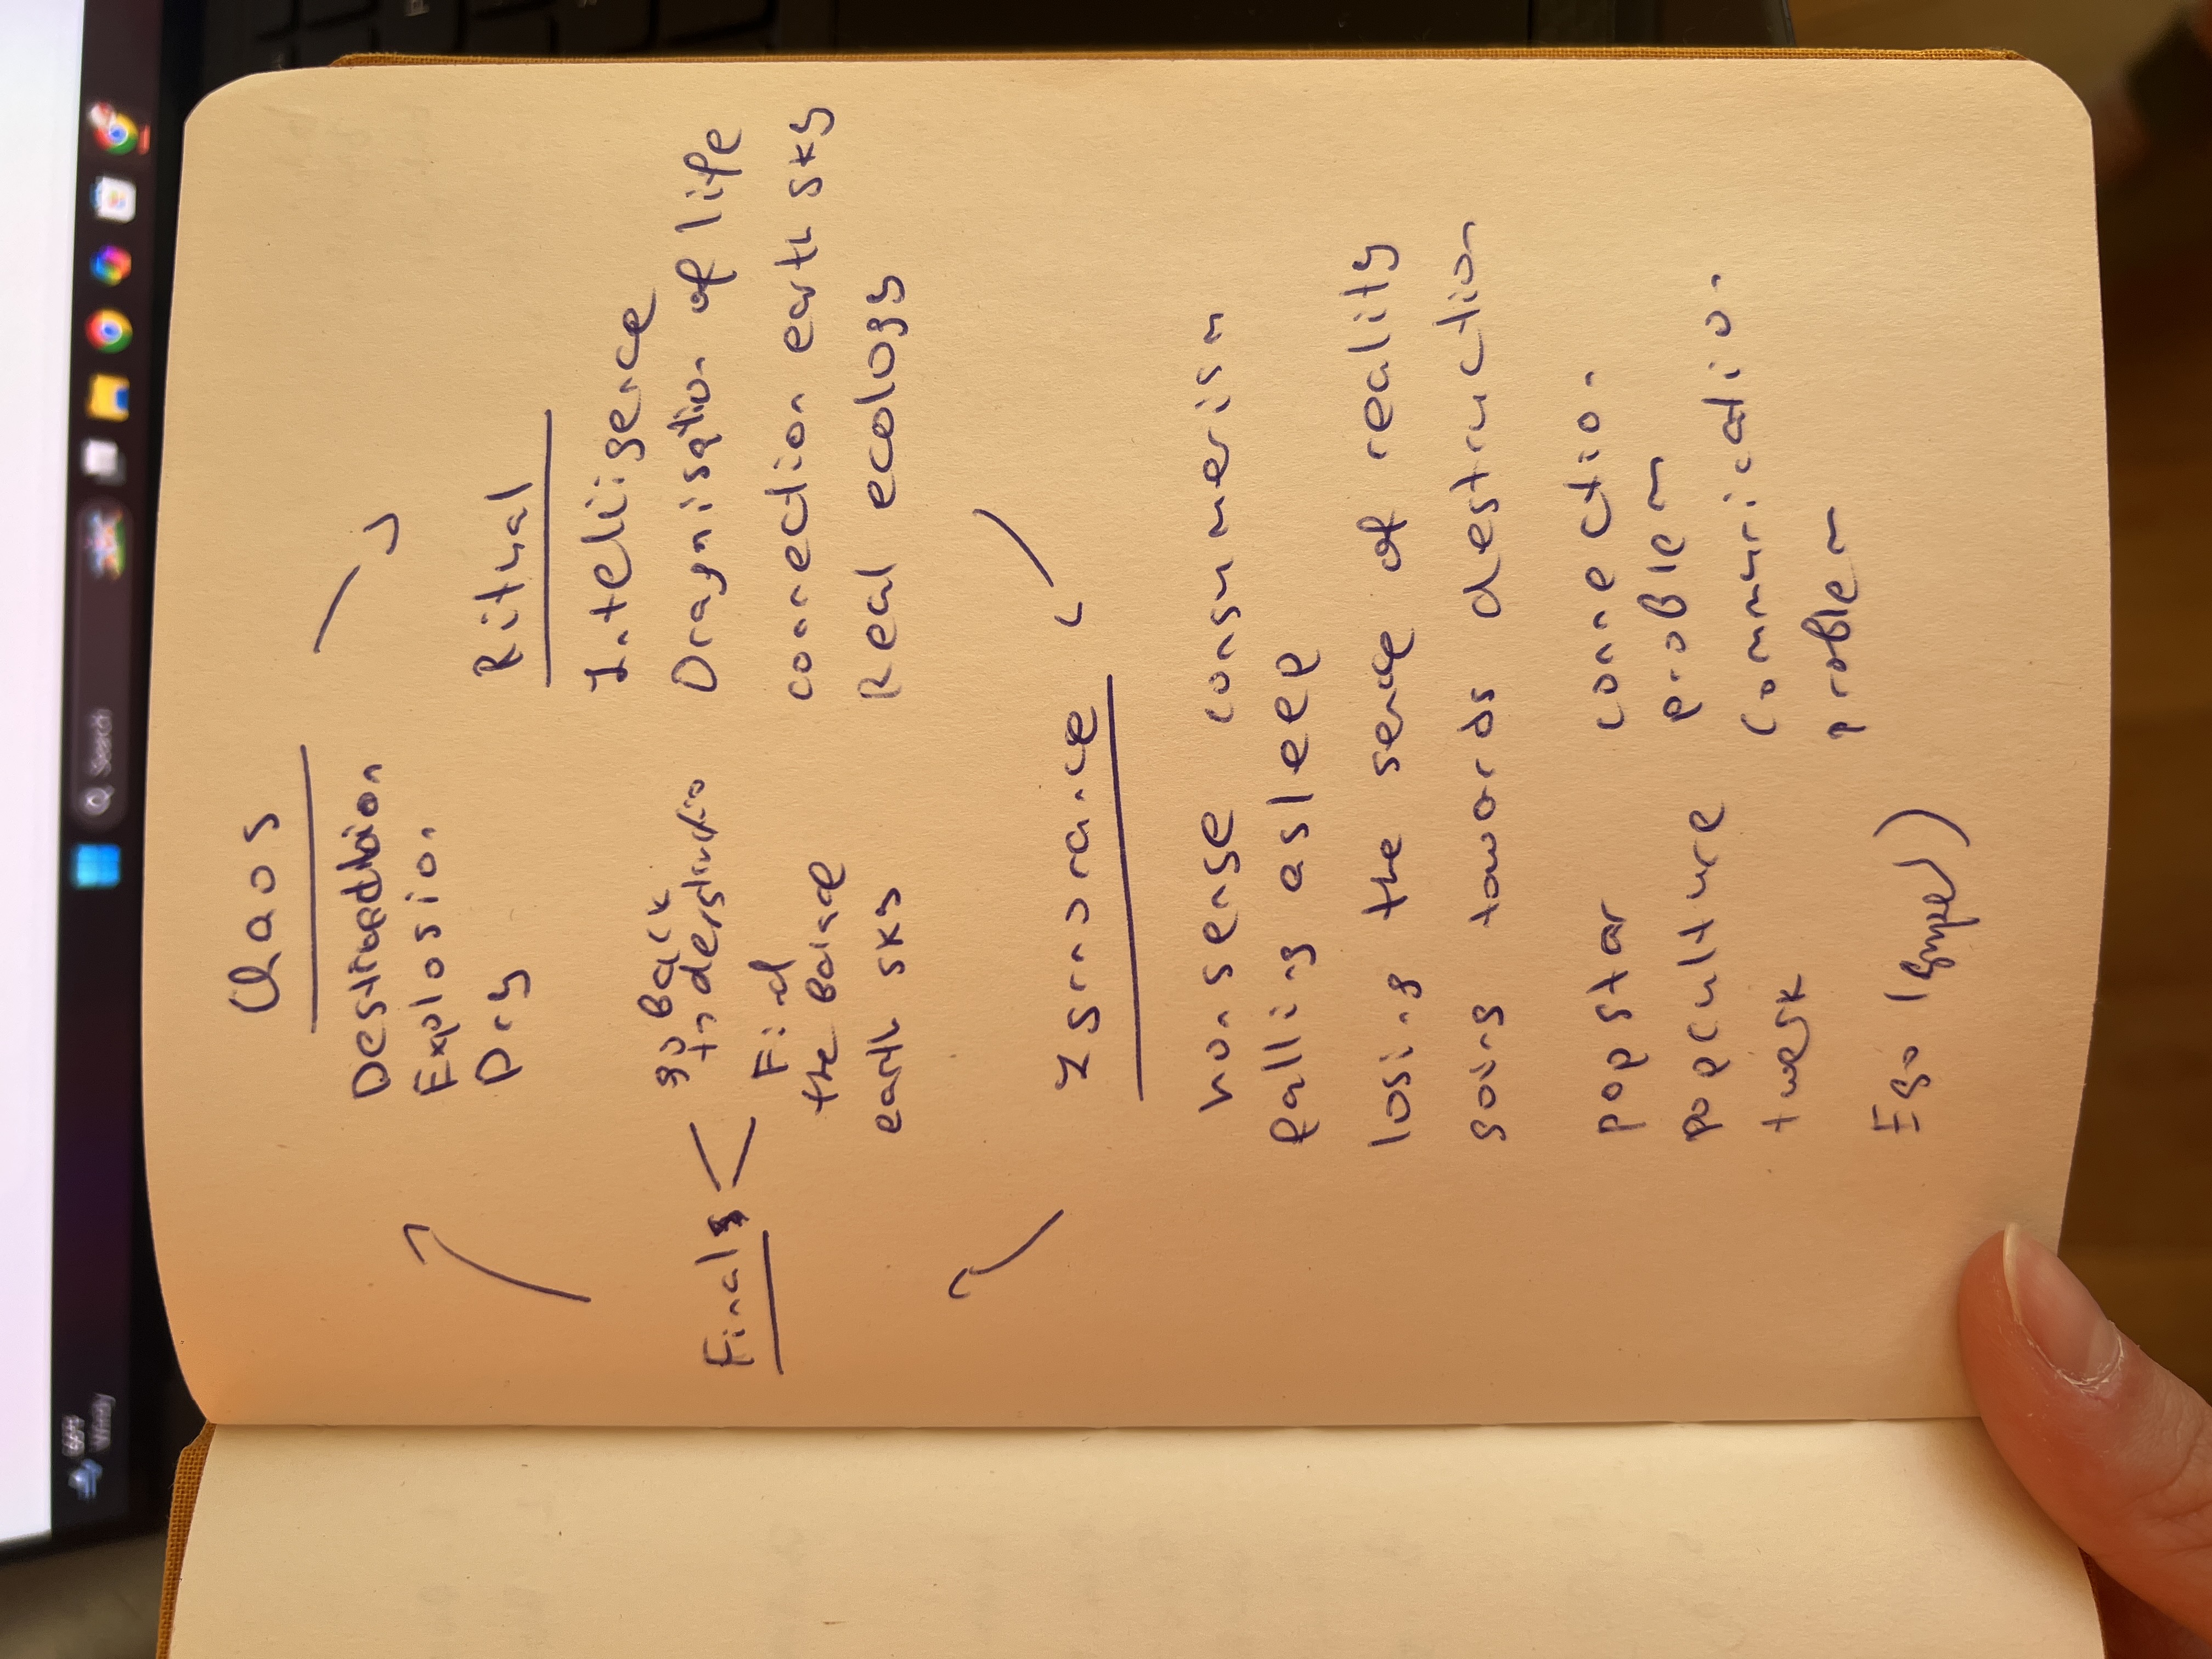 Chaos
Destruction
Explosion
Dry
Ritual
Inteligence
Oragnisation of life
connection earth sky
Real ecology
Finals
go back
to
Find
the balnce
earth sky
Ignorance
nonsense consumerism
falling asleep
losing the sence of reality
going towards destruction
popstar
popculture
twerk
Ego
connection
problem
communication
problem
Search
Windy